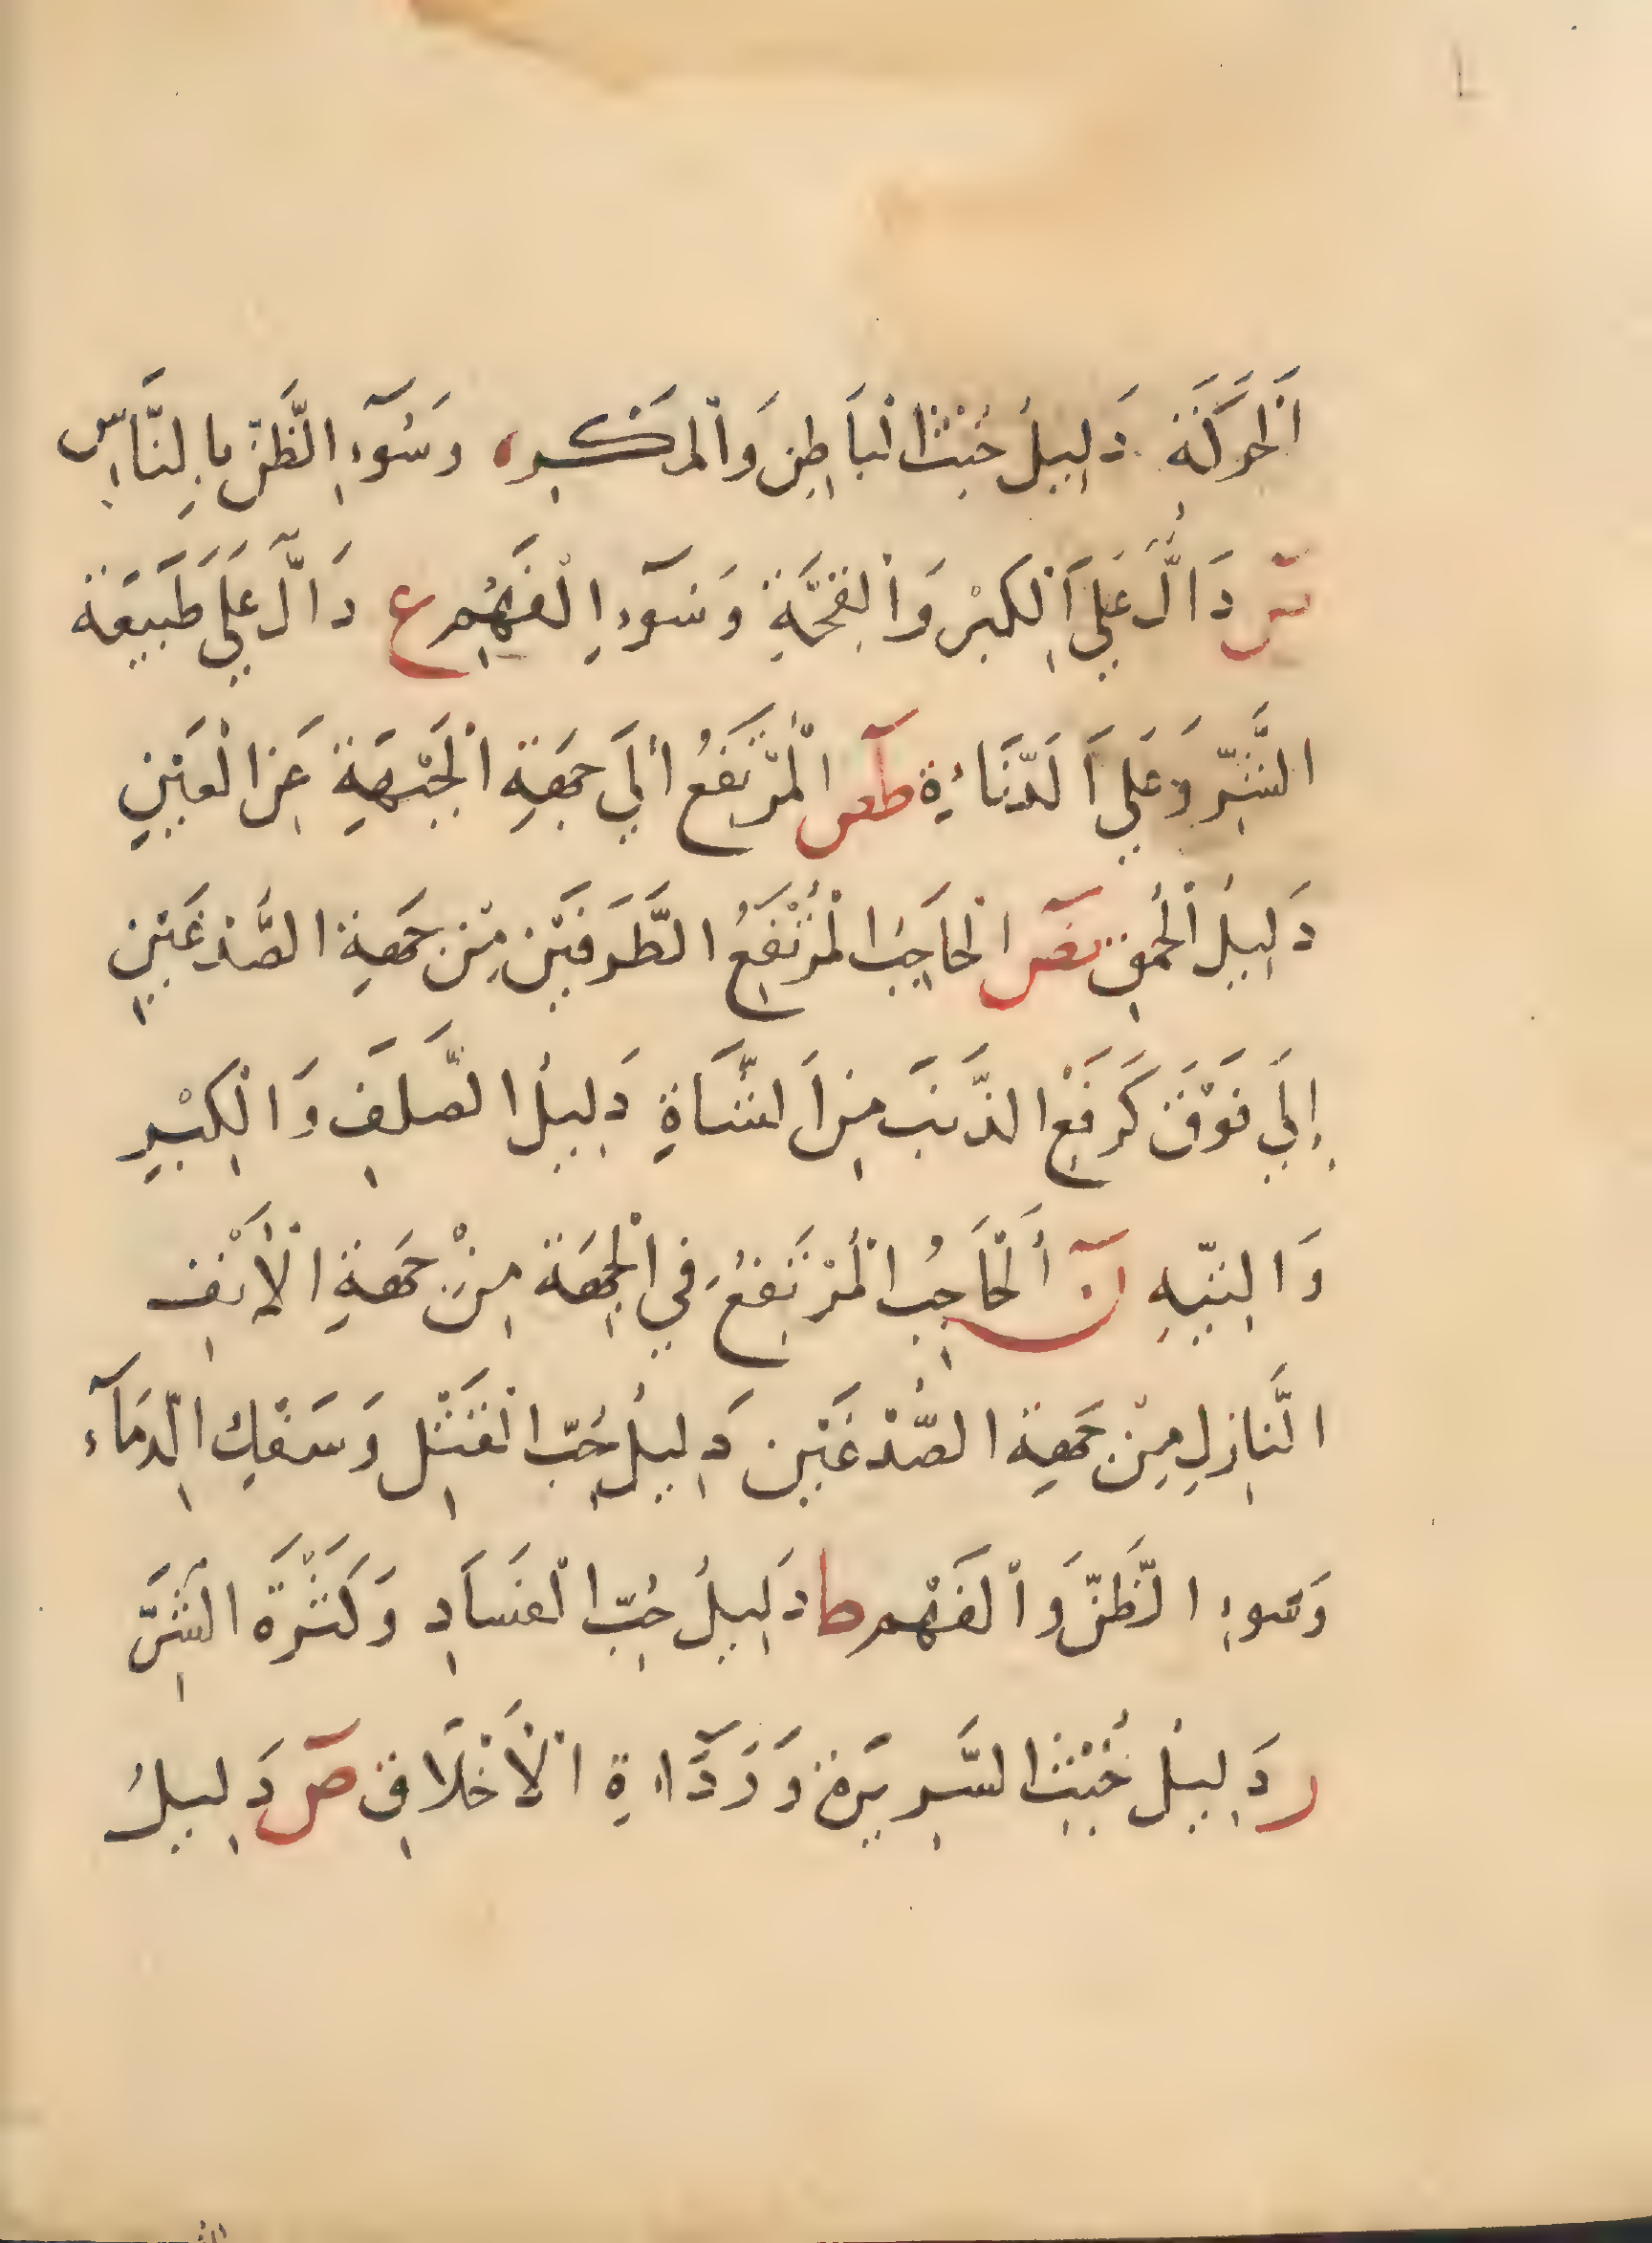 اَلْحَرَكَةِ دَلِيلُ خُبْثِ الْبَاطِنِ وَالْمَكْرِ، وَسُوٓءِ الظَّنِّ بِالنَّاسِ
سٓ دَالُّ عَلَي اَلْكِبْرِ وَالْقِحَّةِ وَسُوٓءِ الْفَهْمِ ع دَالٓ عَلَي طَبِيعَة
الشَّرِّ وَعَلَي اَلدَّنَاءَةِ طٓعس الْمُرْتَفِعُ الَي جِهَةِ الْجَبْهَةِ عَنِ الْعَيْنِ
دَلِيلُ الْحُمْقِ نصٓ الْحَاجِبُ الْمُرْتَفِعُ الطَّرَفَيْنِ مِنْ جِهَةِ الصُّدْغَيْنِ
إِلَي فَوْقَ كَرَفْعِ الذَّنَبَ مِنَ الشَّاةِ دَلِيلُ الصَّلَفِ وَالْكِبْرِ
وَالتِّيهِ نٓ أَلْحَاجِبُ الْمُرْتَفِعُ فِي الْجِهَة مِنْ جِهَةِ الْأَنْفِ
النَّازِلِ مِنْ جِهَةِ الصُّدْغَيْنِ دَلِيلُ حُبِّ الْقَتْلِ وَسَفْكِ الدِّمَآءِ
وَسُوءِ الظَّنِّ وَالْفَهْمِ طا دَلِيلُ حُبِّ الْفَسَادِ وَكَثْرَةِ الشَّرِّ
ر دَلِيلُ خُبْثِ السَّرِيرَةِ وَرَدَآءَةِ الْأَخْلَاقِ صٓ دَلِيلُ